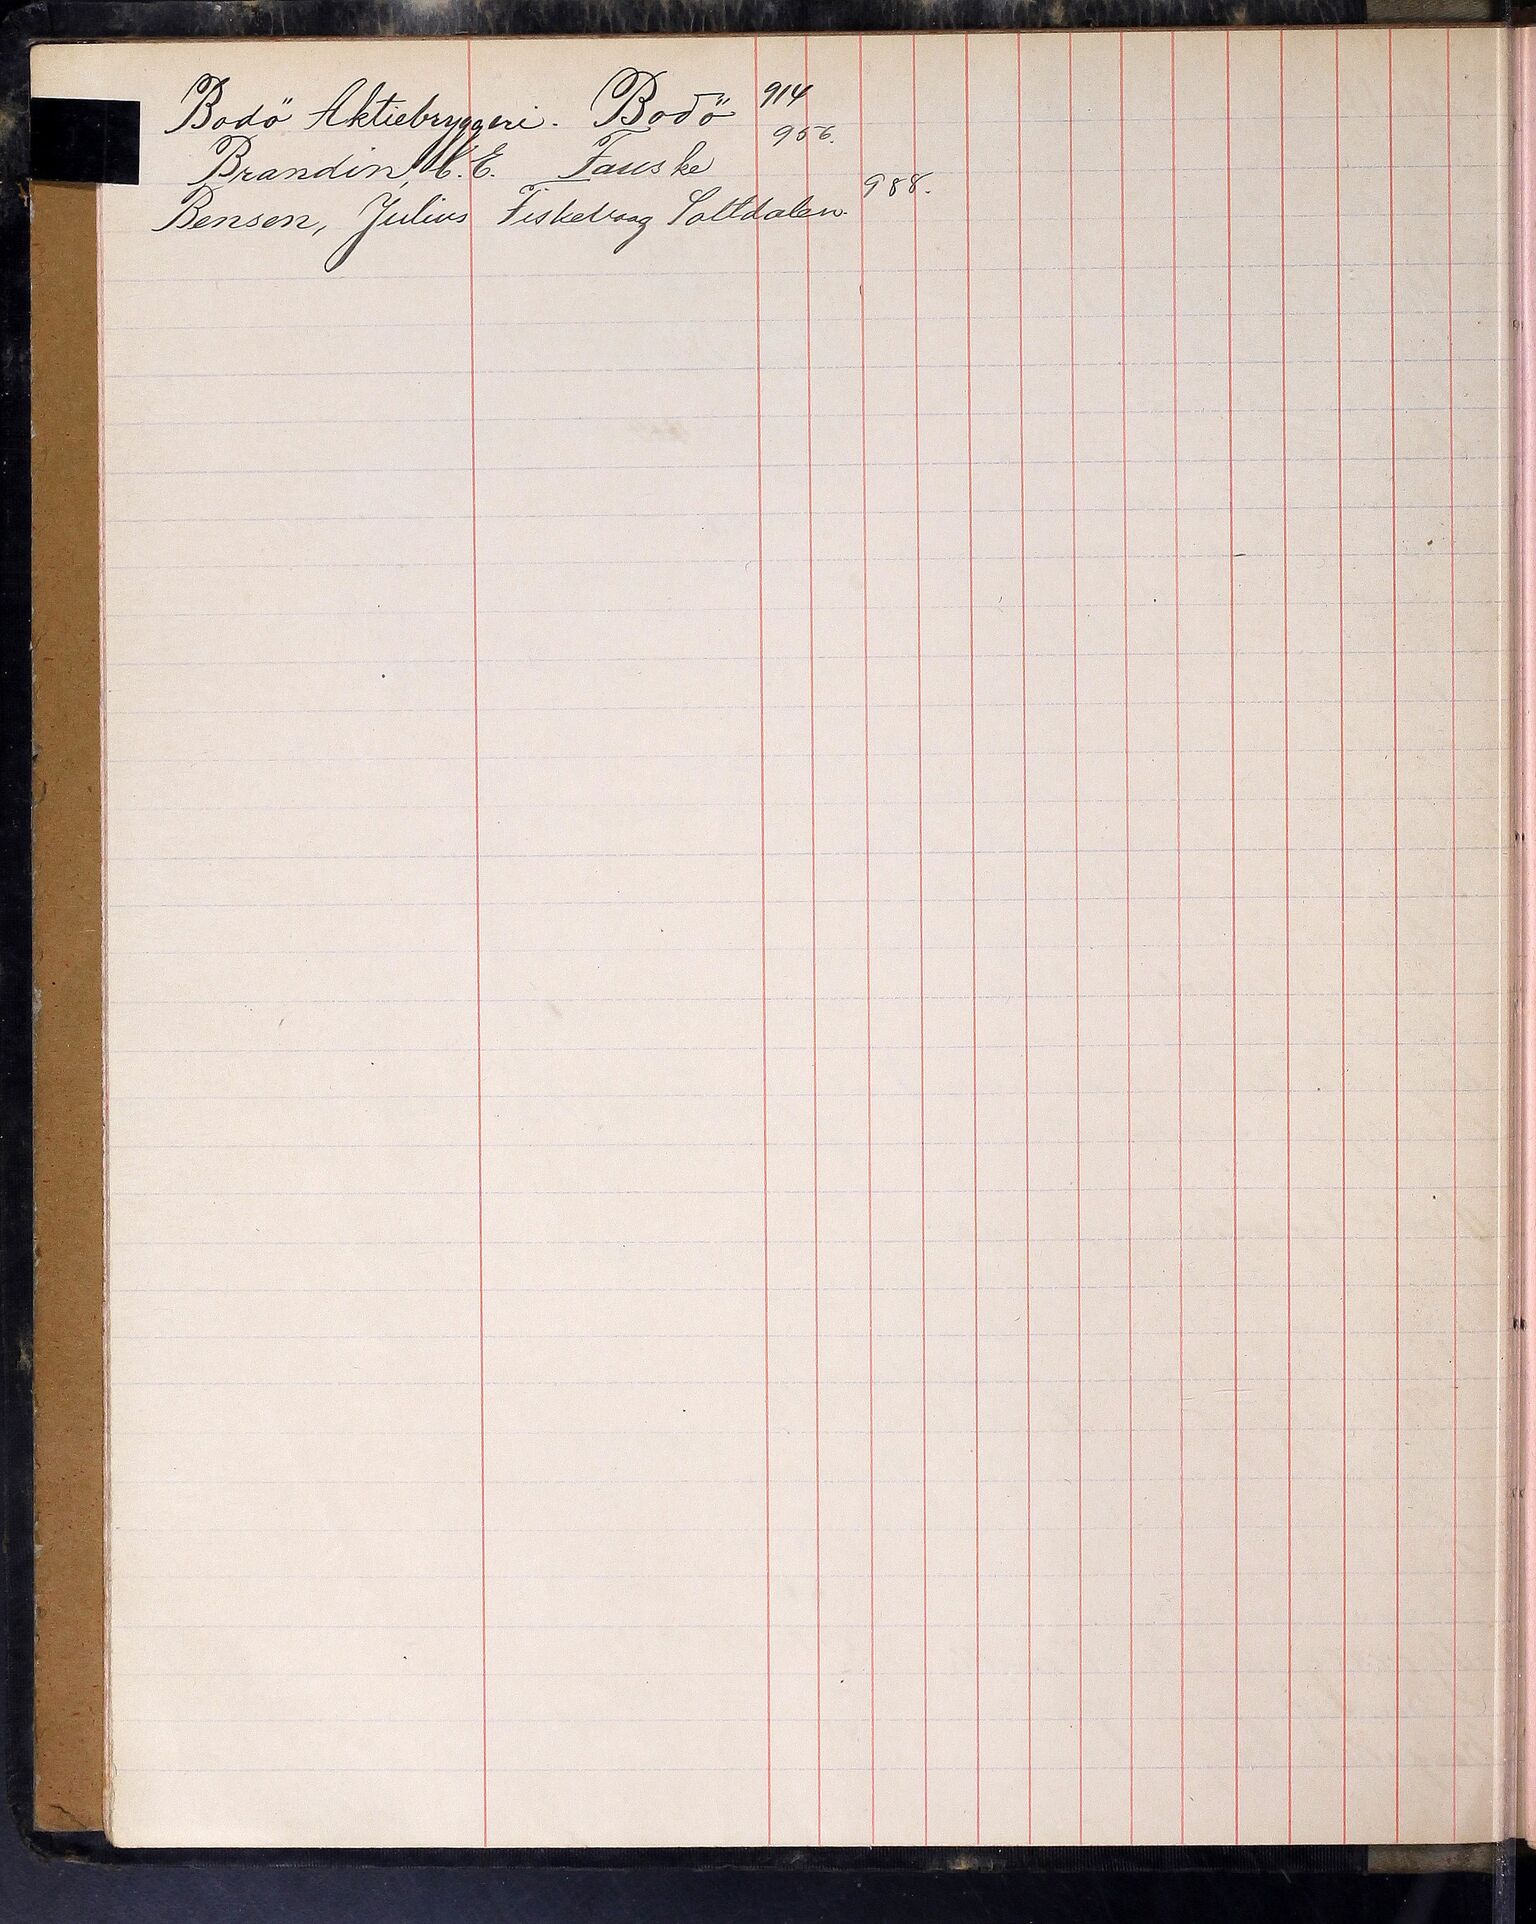 Bodö Aktiebryggeri. Bodö 914
Brandin, C.E. Fauske 956.
Bensen, Julius Fiskevaag Saltdalen. 988.